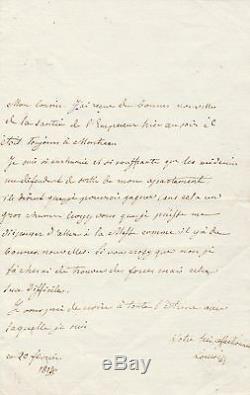 Mon cousin J'ai reçu de bonnes nouvelles
de la santé de l'Empereur hier au soir il
étoit toujours à
Je suis si enrhumée et si souffrante que les médecins
me défendent de sortir de mon appartement
ils disent que je pourrois gagner, sans cela un
gros rhume croyez vous que je puisse me
dispenser d'aller à la Messe comme il y a de
bonnes nouvelles. Si vous croyez que non je
tâcherai de trouver des forces mais cela
sera difficile.
Je vous prie de croire à toute l'estime avec
laquelle je suis
Votre très affectionnée
Louise
ce 20 février
1814
ebay